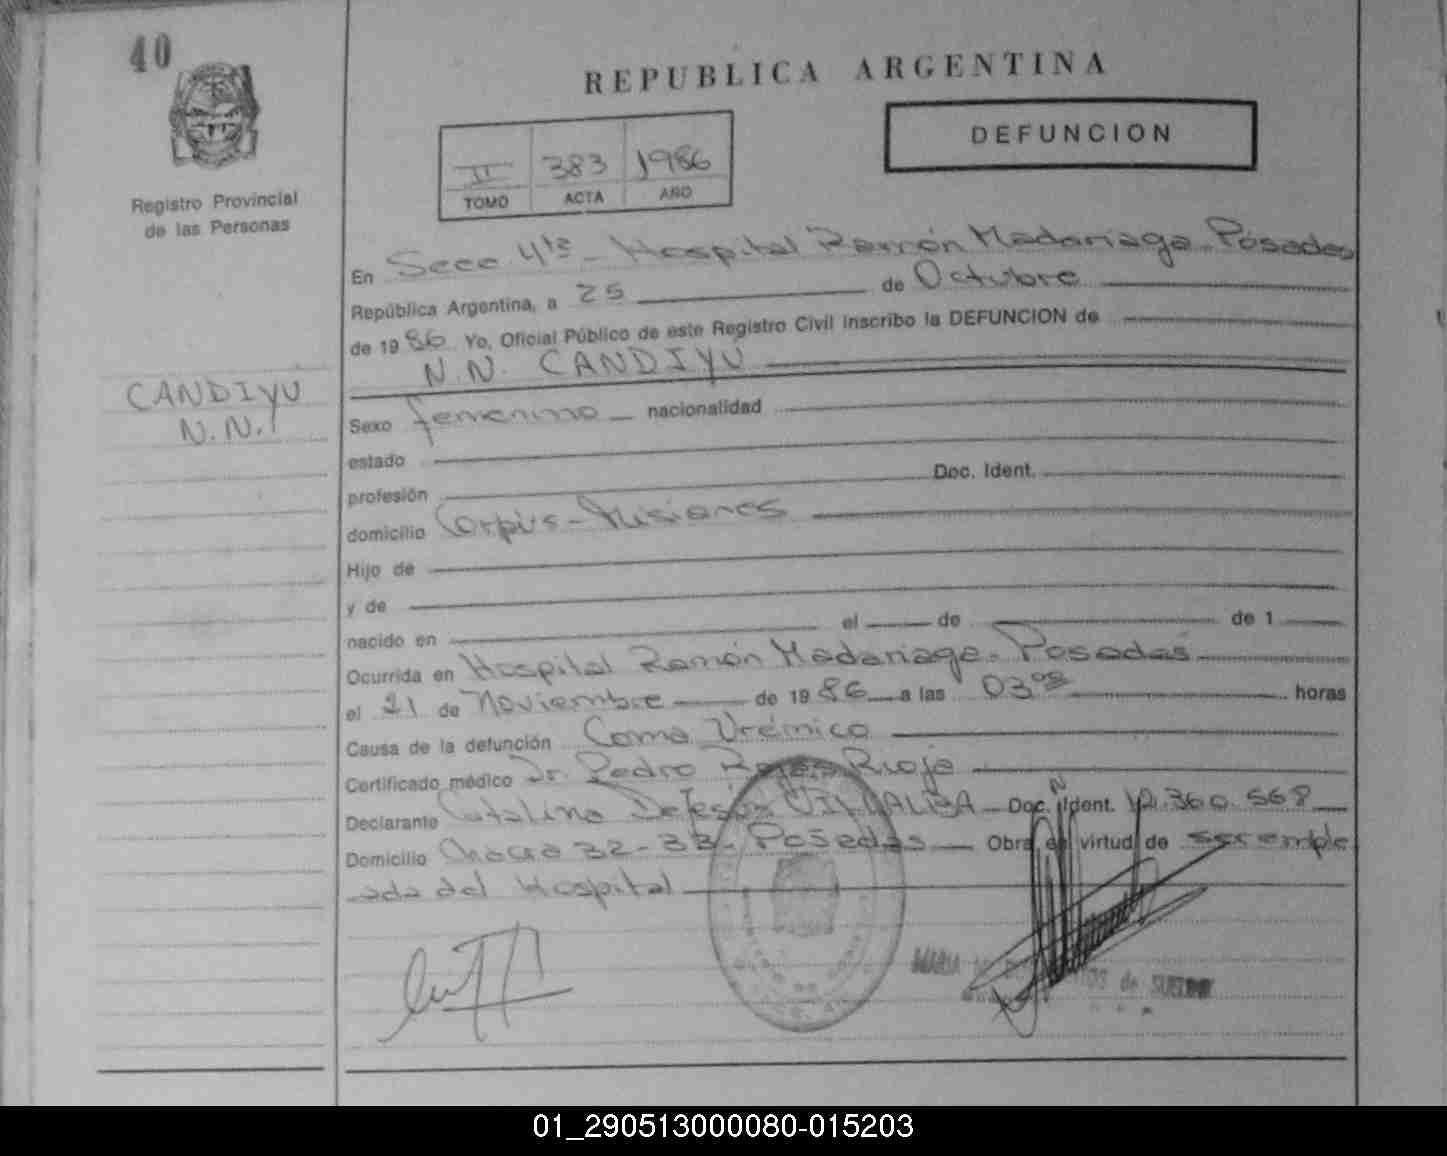 40
REPUBLICA ARGENTINA
DEFUNCION
II 383 1986
TOMO ACTA AÑO
Registro Provincial
de las Personas
En Secc 4ta - Hospital Ramón Madariaga - Posadas
República Argentina, a 25 de Octubre
de 1986 Yo, Oficial Público de este Registro Civil inscribo la DEFUNCION de
N.N. CANDIYU
CANDIYU
N.N.
Sexo femenino nacionalidad
estado
profesión Doc. Ident.
domicilio Corpus - Misiones
Hijo de
y de
nacido en el de de 1
Ocurrida en Hospital Ramón Madariaga - Posadas
el 21 de Noviembre de 1986 a las 03 horas
Causa de la defunción Coma Urémico
Certificado médico Dr. Pedro Rojas Rioja
Declarante Catalina DeJesús VILLALBA Doc. Ident. 12.360.568
Domicilio Chacra 32-33 - Posedas Obra en virtud de ser emple
ada del Hospital
MARIA de
01_290513000080-015203